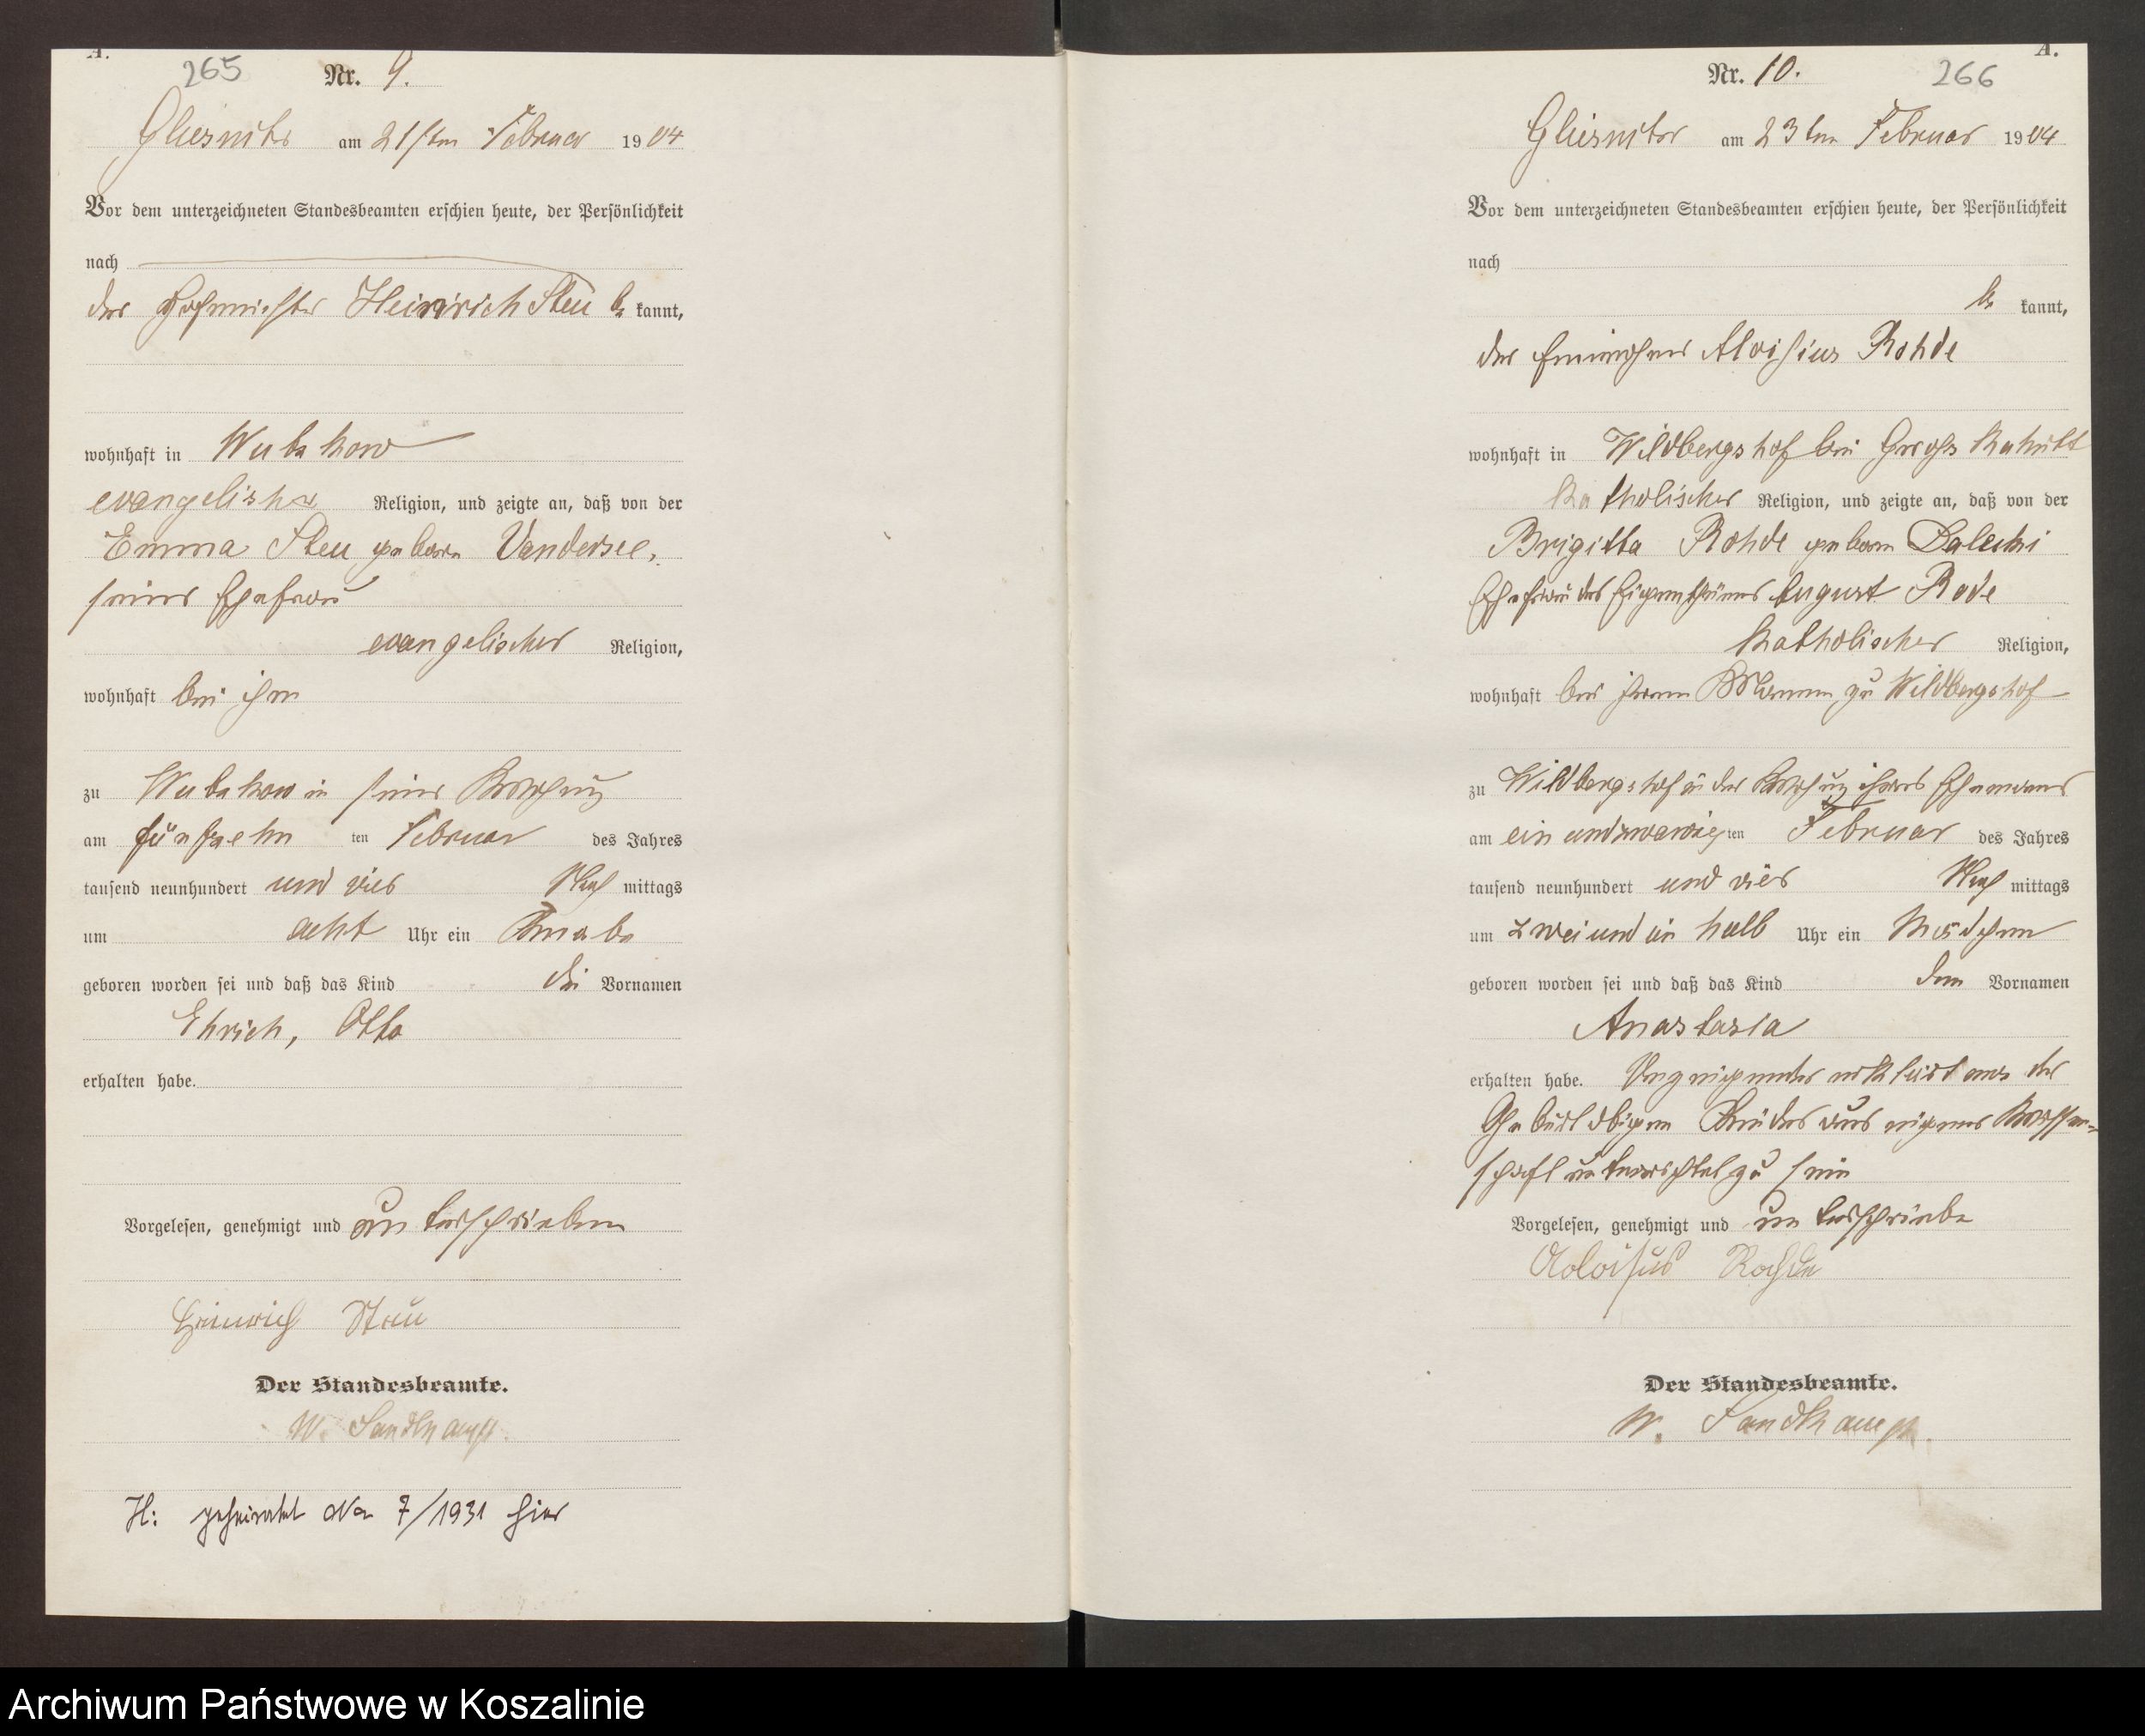 A.
265 Nr. 9.
Gliesnitz am 21sten Februar 1904
Vor dem unterzeichneten Standesbeamten erschien heute, der Persönlichkeit
nach
der Hofmeister Heinrich Steu be kannt,
wohnhaft in Wutzkow
evangelischer Religion, und zeigte an, daß von der
Emma Steu geboren Vandersee,
seiner Ehefrau
evangelischer Religion,
wohnhaft bei ihm
zu Wutzkow in seiner Wohnung
am fünfzehn ten Februar des Jahres
tausend neunhundert und vier Nach mittags
um acht Uhr ein Knabe
geboren worden sei und daß das Kind die Vornamen
Ehrich, Otto
erhalten habe.
Vorgelesen, genehmigt und unterschrieben
Heinrich Steu
Der Standesbeamte.
W. Sandkamp.
H: geheiratet No 7/1931 hier
A.
Nr. 10. 266
Gliesnitz am 23ten Februar 1904
Vor dem unterzeichneten Standesbeamten erschien heute, der Persönlichkeit
nach
be kannt,
der Einwohner Aloisius Rohde
wohnhaft in Wildbergshof bei Gross
katholischer Religion, und zeigte an, daß von der
Brigitta Rohde geboren
Ehefrau des Eigenthümers August Rode
katholischer Religion,
wohnhaft bei ihrem Manne zu Wildbergshof
zu Wildbergshof in der Wohnung ihres Ehemanns
am ein und zwanzig ten Februar des Jahres
tausend neunhundert und vier Nach mittags
um zwei und ein halb Uhr ein Mädchen
geboren worden sei und daß das Kind den Vornamen
Anastasia
erhalten habe. Anzeigender erklärt aus der
Geburt obigen Kindes aus eigener Wissen-
schaft unterrichtet zu sein
Vorgelesen, genehmigt und unterschriebe
Aoloisius Rohde
Der Standesbeamte.
W. Sandkamp.
Archiwum Państwowe w Koszalinie